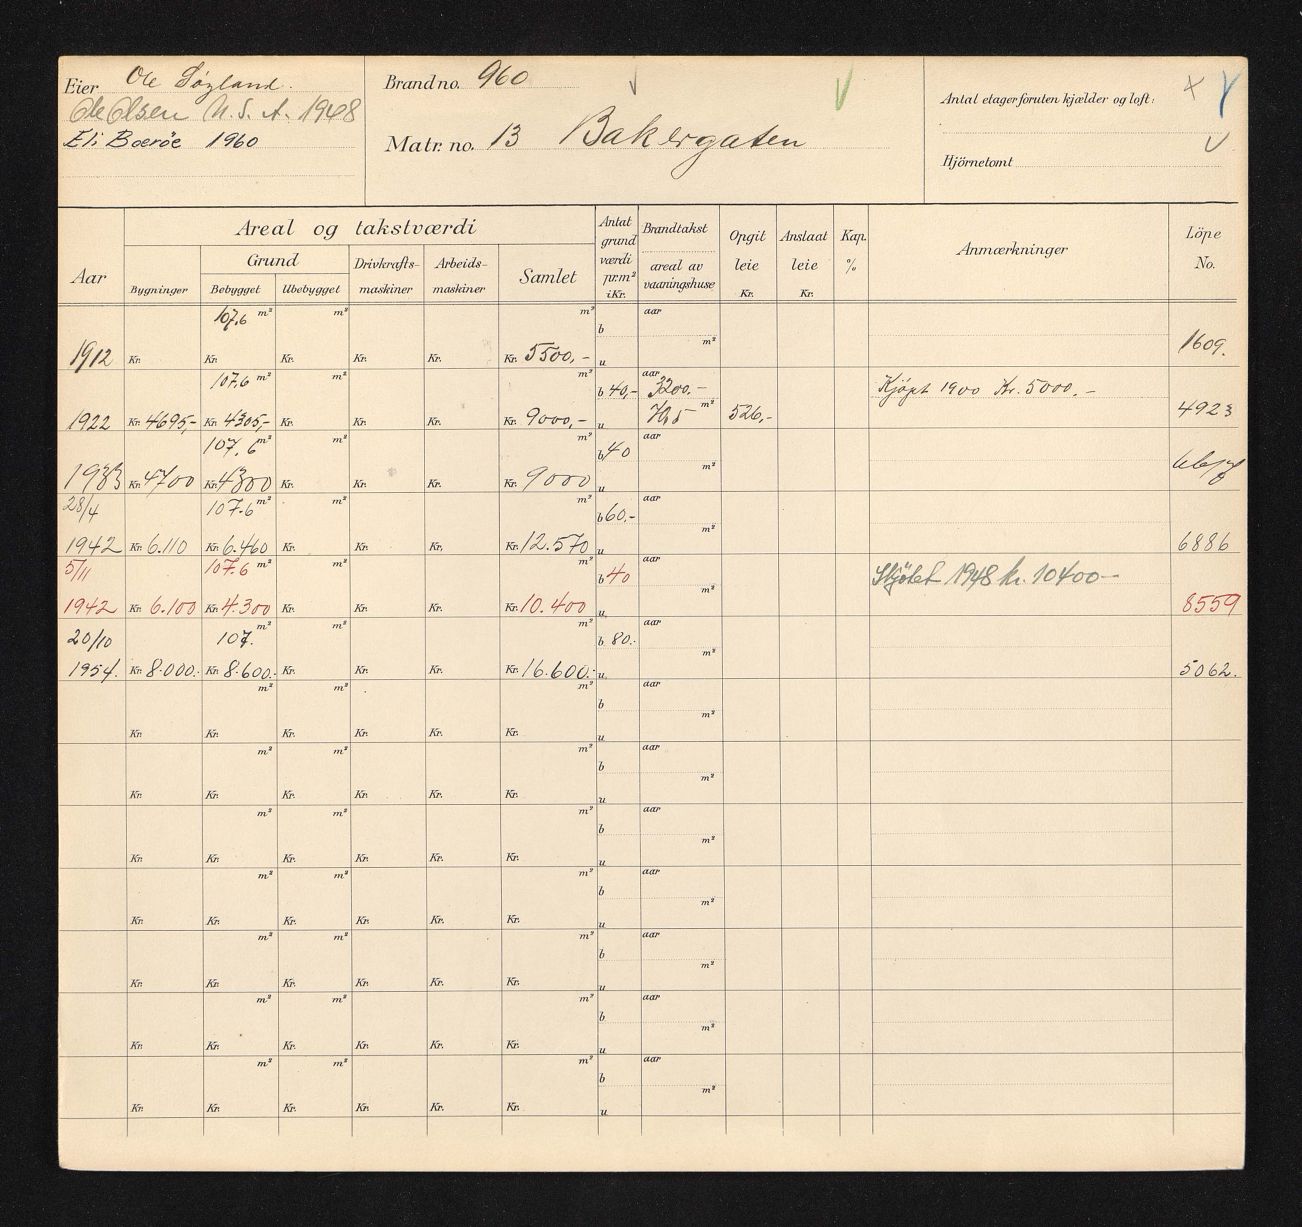 Eier Ole Søyland.
Ole Olsen U.S.A. 1948
Eli Boerøe 1960
Brand no. 960
Matr. no. 13 Bakergaten
Antal etager foruten kjælder og loft:
Hjörnetomt
Aar
Areal og takstværdi
Grund
Bygninger Bebygget Ubebygget
Drivkrafts-maskiner
Arbeids-maskiner
Samlet
Antat grund værdi pr. m² i Kr.
Brandtakst
areal av vaaningshuse
Opgit leie Kr.
Anslaat leie Kr.
Kap. %
Anmærkninger
Löpe No.
107.6 m² m² m² b aar
m²
1912 Kr. Kr. Kr. Kr. Kr. Kr. 5500,- u 1609.
107.6 m² m² m² b 40,- aar 3200.- Kjøpt 1900 Kr. 5000.-
1922 Kr. 4695,- Kr. 4305,- Kr. Kr. Kr. Kr. 9000,- u m² 526,- 4923
107.6 m² m² m² b 40 aar
m²
1933 Kr. 4700 Kr. 4300 Kr. Kr. Kr. Kr. 9000 u
28/4 107.6 m² m² m² b 60.- aar
m²
1942 Kr. 6.110 Kr. 6.460 Kr. Kr. Kr. Kr. 12.570 u 6886
5/11 107.6 m² m² m² b 40 aar Skjøtet 1948 kr. 10400-
m²
1942 Kr. 6.100 Kr. 4.300 Kr. Kr. Kr. Kr. 10.400 u 8559
20/10 107. m² m² m² b 80.- aar
m²
1954. Kr. 8.000.- Kr. 8.600.- Kr. Kr. Kr. Kr. 16.600.- u 5062.
m² m² m² b aar
m²
Kr. Kr. Kr. Kr. Kr. Kr. u
m² m² m² b aar
m²
Kr. Kr. Kr. Kr. Kr. Kr. u
m² m² m² b aar
m²
Kr. Kr. Kr. Kr. Kr. Kr. u
m² m² m² b aar
m²
Kr. Kr. Kr. Kr. Kr. Kr. u
m² m² m² b aar
m²
Kr. Kr. Kr. Kr. Kr. Kr. u
m² m² m² b aar
m²
Kr. Kr. Kr. Kr. Kr. Kr. u
m² m² m² b aar
m²
Kr. Kr. Kr. Kr. Kr. Kr. u